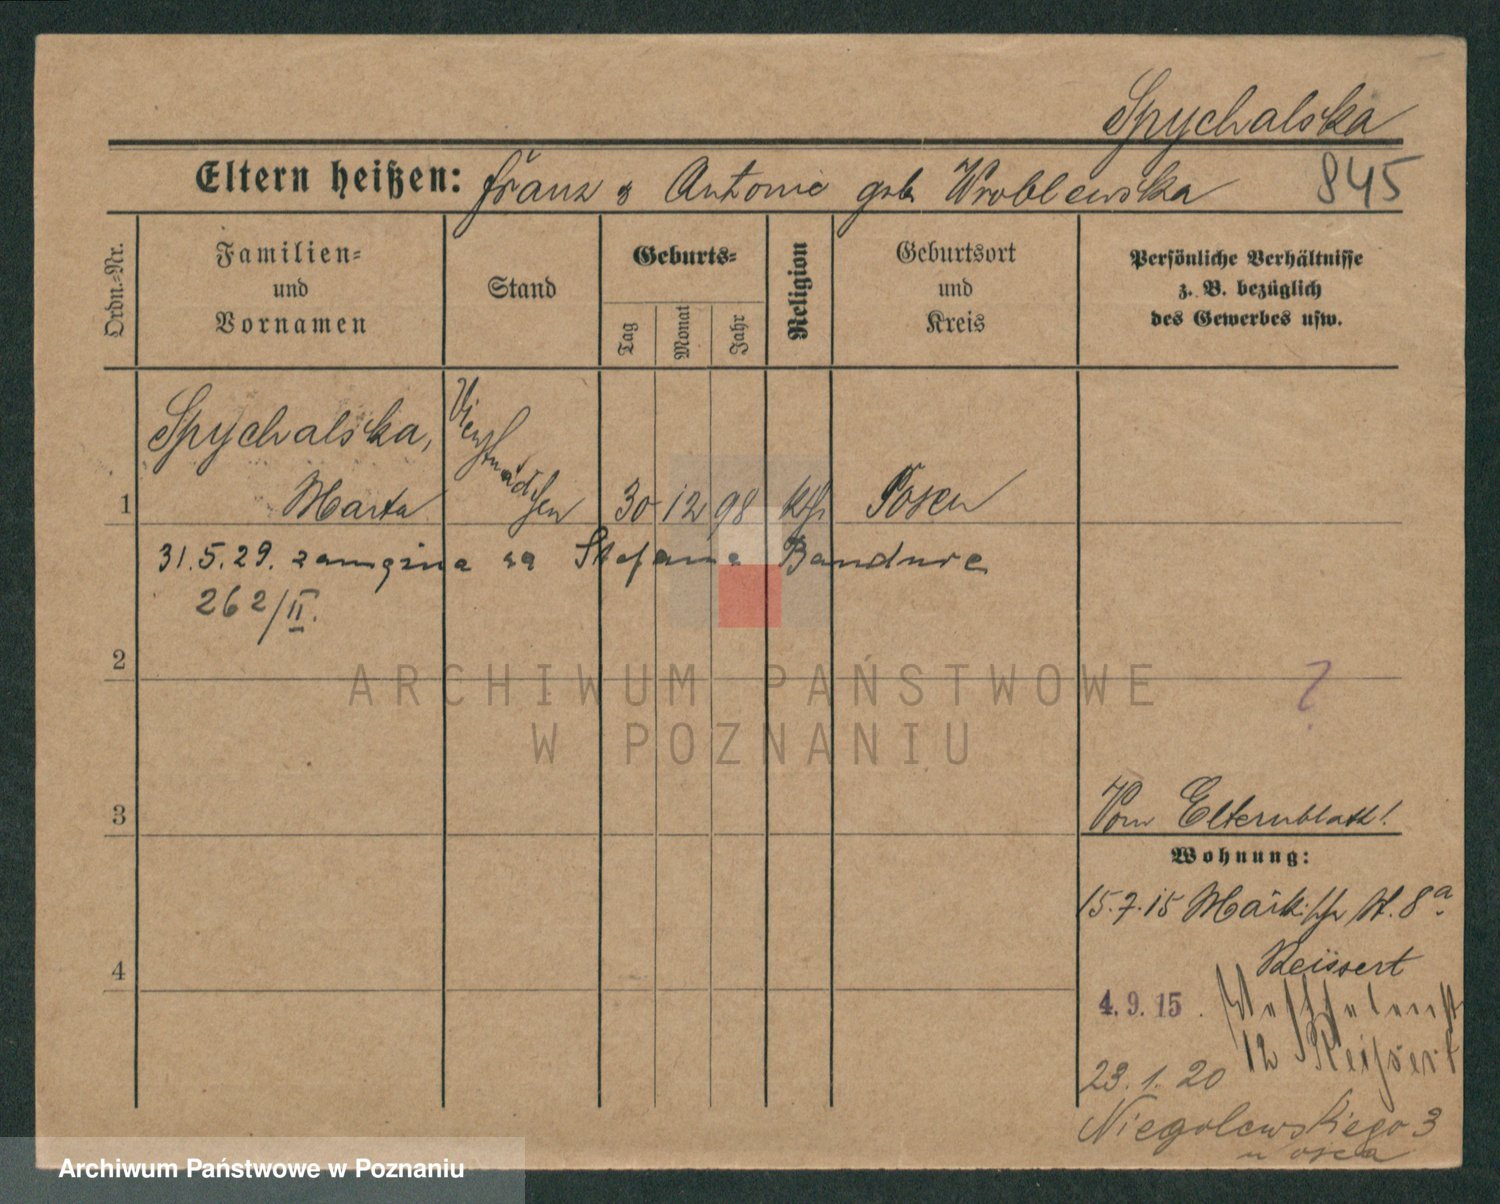 Spychalska
Eltern heißen: Franz & Antonie geb Wroblewska 845
Ordn.-Nr.
Familien-
und
Vornamen
Stand
Geburts-
Tag
Monat
Jahr
Religion
Geburtsort
und
Kreis
Persönliche Verhältnisse
z. B. bezüglich
des Gewerbes usw.
Spychalska,
1 Marta Dienstmädchen 30 12 98 kth Posen
31.5.29. zamężna za Stefana Bandurę
262/II.
2
?
ARCHIWUM PAŃSTWOWE
W POZNANIU
3
Vom Elternblatt!
Wohnung:
15.7.15 Märkische St. 8a
Reissert
4
4.9.15.
12 Reissert
23.1.20
Niegolewskiego 3
Archiwum Państwowe w Poznaniu